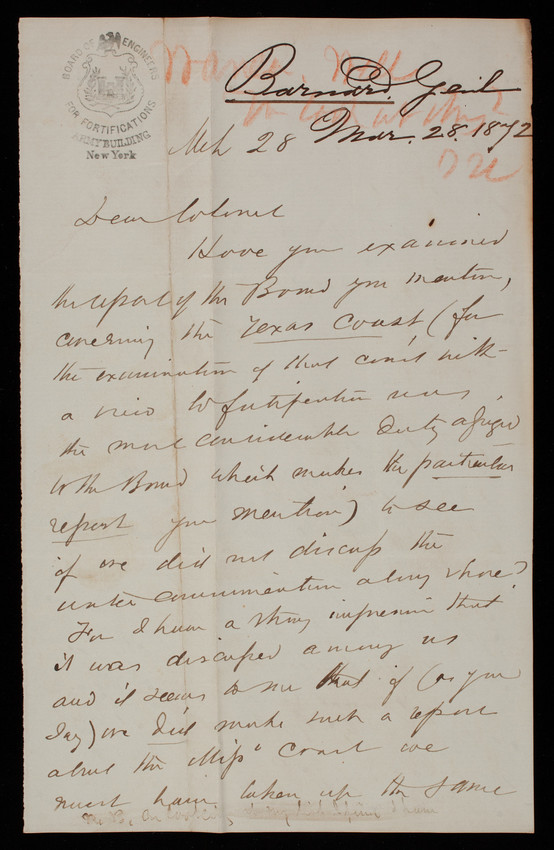 BOARD OF ENGINEERS
FOR FORTIFICATIONS
ARMY BUILDING
New York
Barnard, Genl
Mch 28 Mar. 28. 1872
Dear Colonel
Have you examined
the report of the Board you mention,
concerning the Texas Coast (for
the examination of that coast with
a view to fortification was
the most considerable duty assigned
to the Board which makes the particular
report you mention) to see
if we did not discuss the
water communication along shore?
For I have a strong impression that
it was discussed among us
and it seems to me that if (as you
say) we did make such a report
about the Miss" Coast we
must have taken up the same